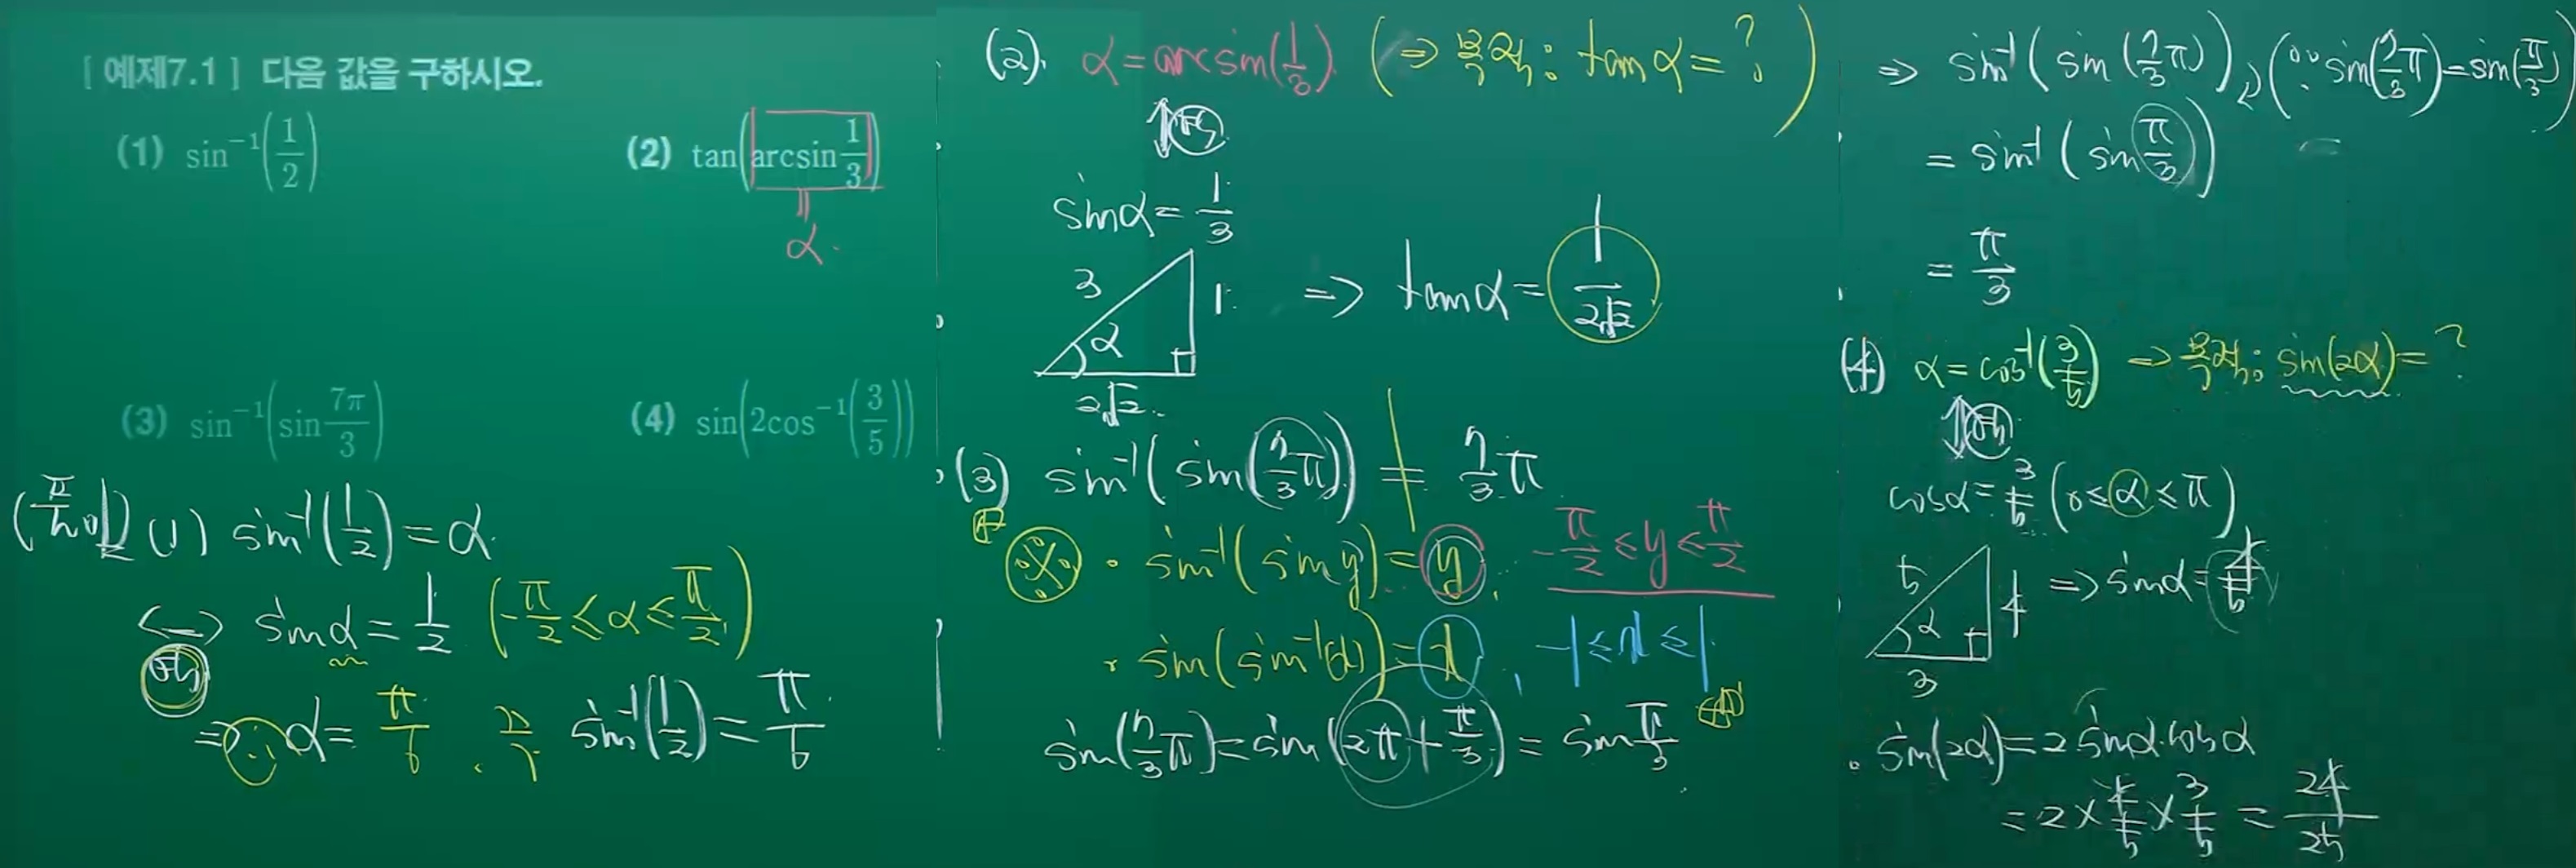 [예제7.1] 다음 값을 구하시오.
(1) sin⁻¹(1/2)
(2) tan(arcsin 1/3)
= α.
(3) sin⁻¹(sin 7π/3)
(4) sin(2cos⁻¹(3/5))
(1) sin⁻¹(1/2) = α.
↔ sinα = 1/2 (-π/2 ≤ α ≤ π/2)
정의
⇒ α = π/6 . 즉 sin⁻¹(1/2) = π/6
(2). α = arcsin(1/3) (⇒ 목적: tanα = ?)
⇕ 정의
sinα = 1/3
3 1 α 2√2 ⇒ tanα = 1/2√2
(3) sin⁻¹(sin(7/3π)) ≠ 7/3π
※ · sin⁻¹(sin y) = y, -π/2 ≤ y ≤ π/2
· sin(sin⁻¹(x)) = x, -1 ≤ x ≤ 1
sin(7/3π) = sin(2π + π/3) = sin π/3
⇒ sin⁻¹(sin(7/3π)) (∵ sin(7/3π) = sin(π/3))
= sin⁻¹(sin π/3)
= π/3
(4) α = cos⁻¹(3/5) ⇒ 목적: sin(2α) = ?
⇕ 정의
cosα = 3/5 (0 ≤ α ≤ π)
5 4 α 3 ⇒ sinα = 4/5
· sin(2α) = 2sinα·cosα
= 2 × 4/5 × 3/5 = 24/25